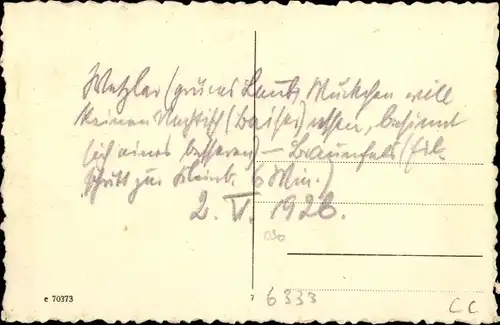 Wetzlar (grünes Laub, Muckchen will
keinen Nachtisch (Baiser) essen, besinnt
sich eines besseren) – Braunfels (Eil-
schritt zur Kleinb. 6 Min.)
2. V. 1926.
030
e 70373
7
6333
CC